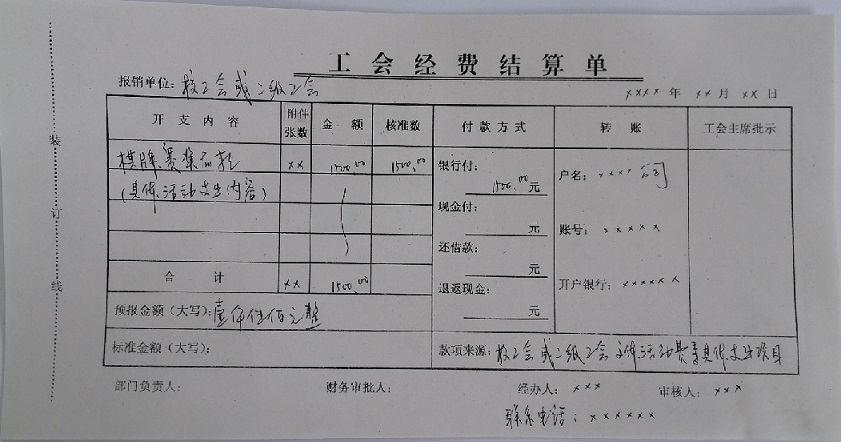 工会经费结算单
报销单位：校工会或二级工会
××××年 ××月 ××日
装订线
开支内容 附件张数 金额 核准数 付款方式 转账 工会主席批示
棋牌赛奖品款 ×× 1500.00 1500.00 银行付： 1500.00元 户名：××××公司
(具体活动支出内容) 现金付： 元 账号：×××××
还借款： 元
合计 ×× 1500.00 退返现金： 元 开户银行：××××××
预报金额（大写）：壹仟伍佰元整
标准金额（大写）： 款项来源：校工会或二级工会文体活动费等具体支出项目
部门负责人： 财务审批人： 经办人：××× 审核人：×××
联系电话：××××××